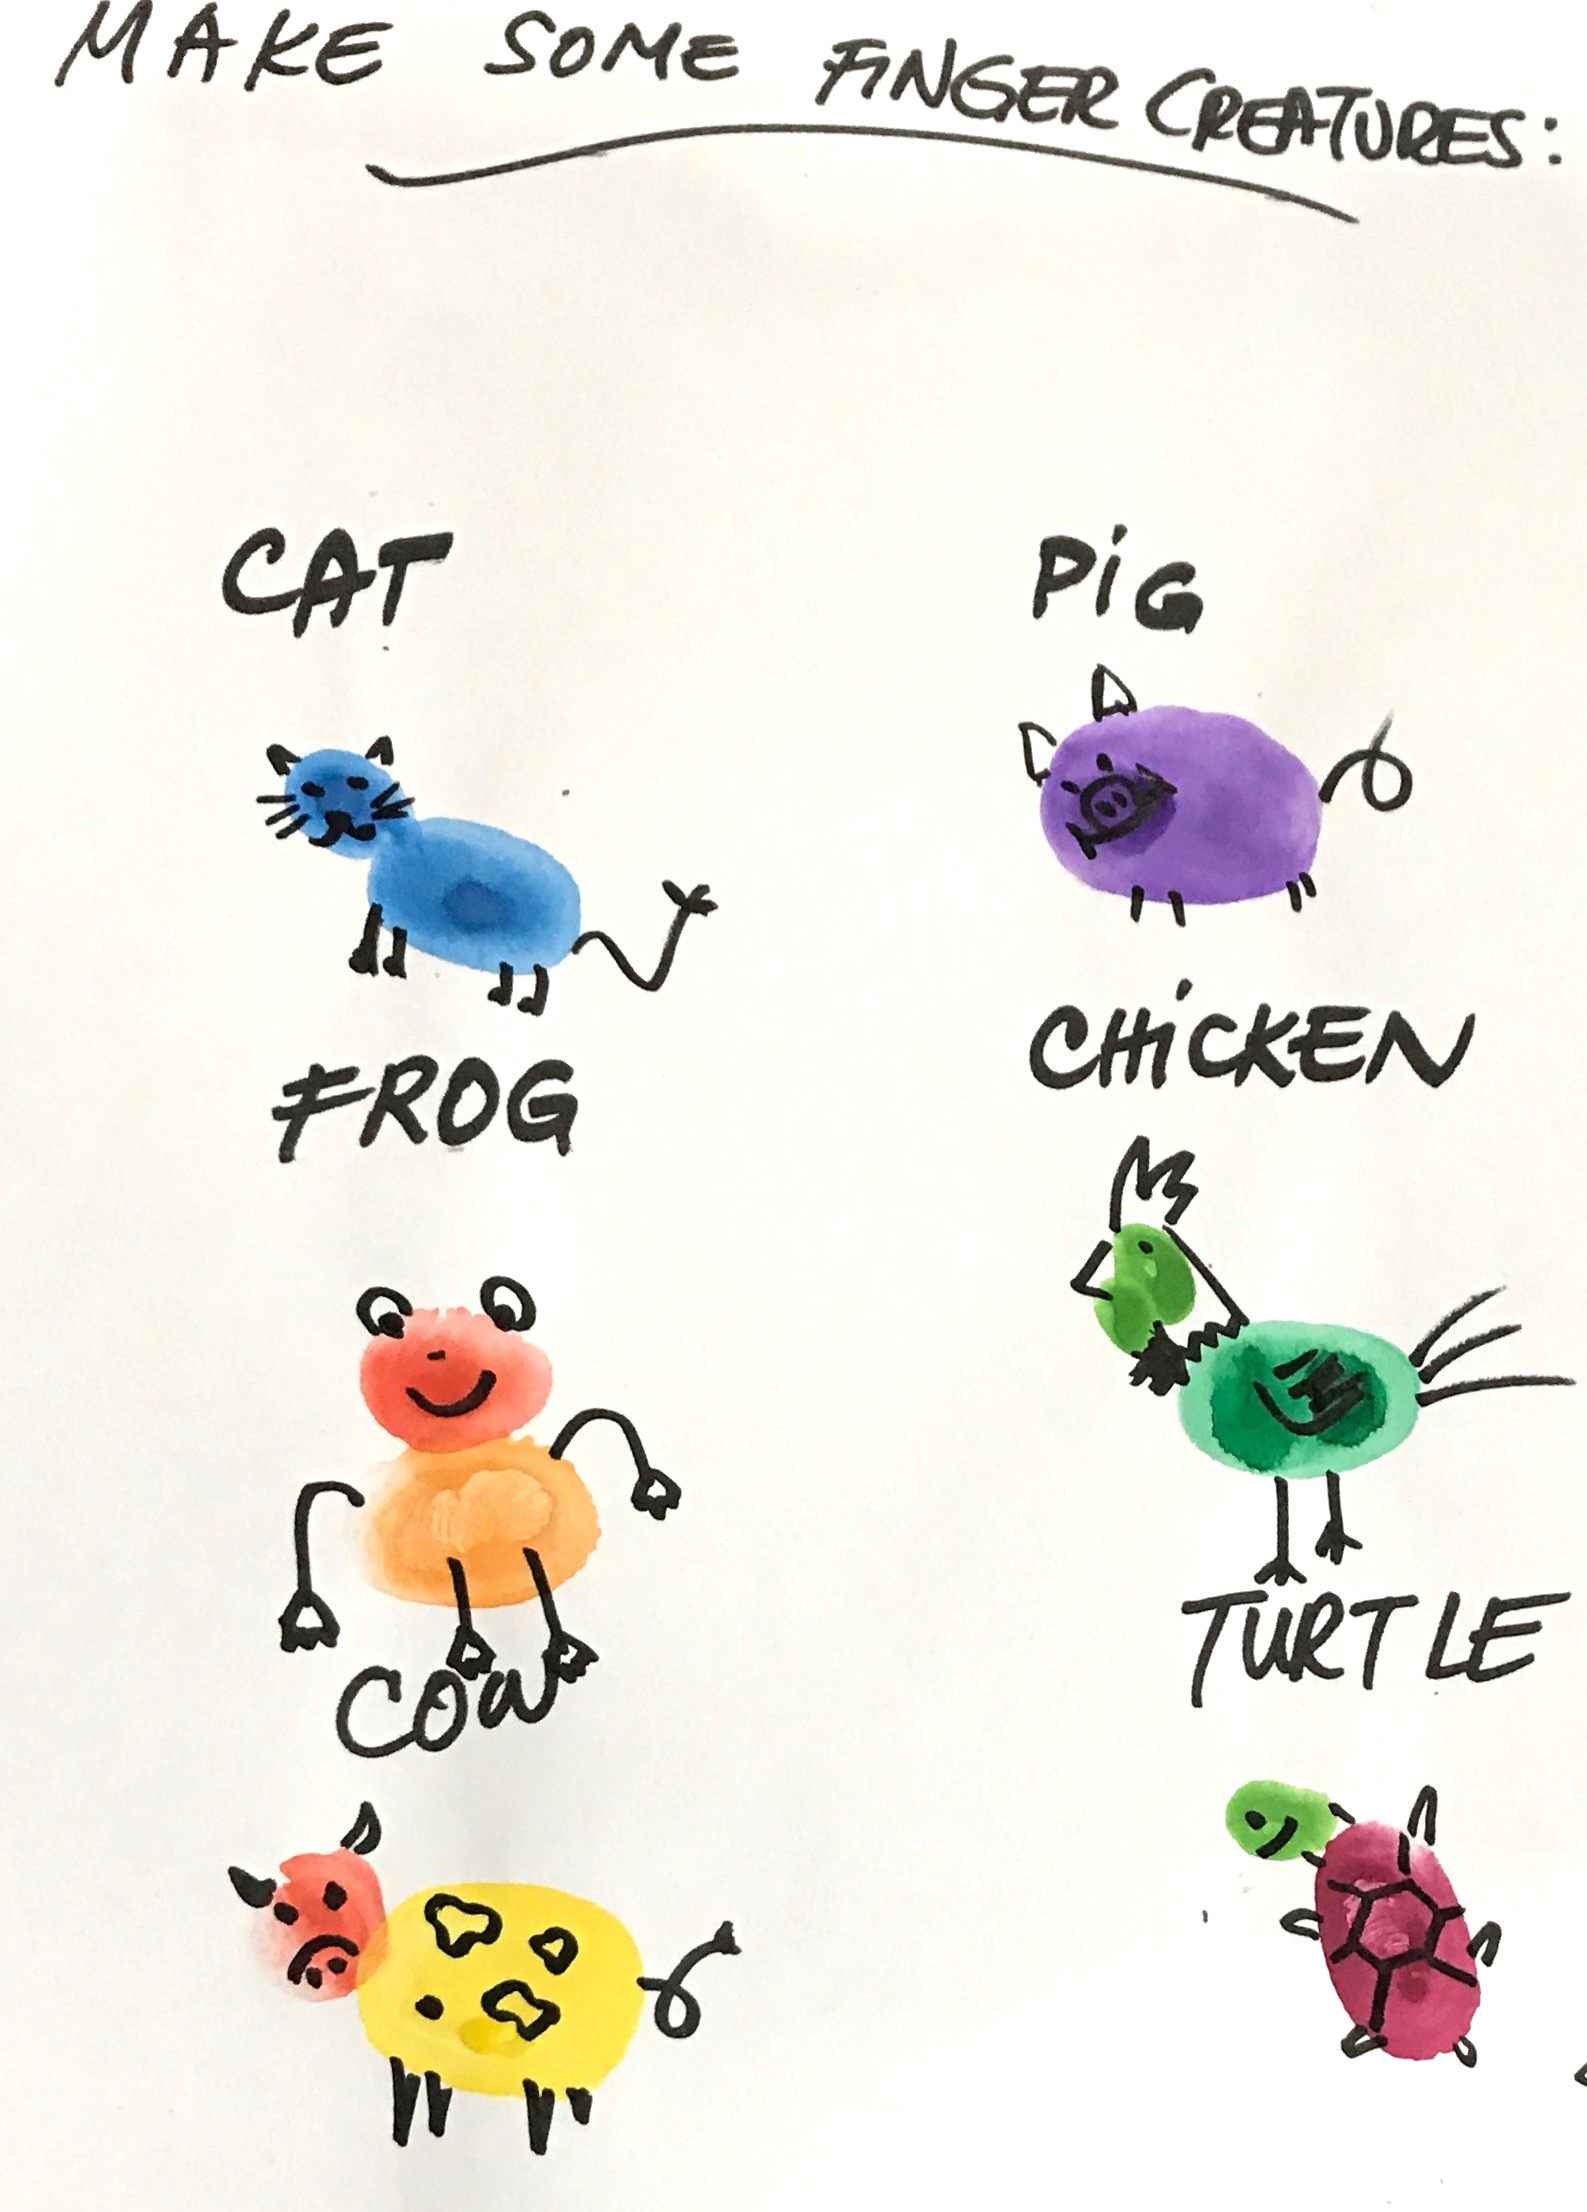 MAKE SOME FINGER CREATURES:
CAT
PIG
FROG
CHICKEN
COW
TURTLE